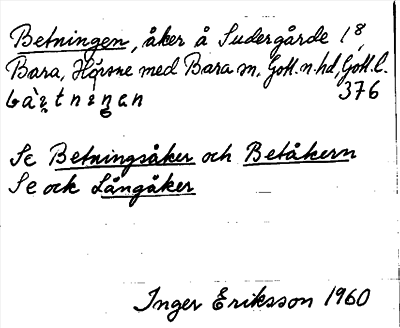 Betningen, åker å Sudergårde 1 8,
Bara, Hörsne med Bara sn, Gotl. n. hd, Gotl. l.
376
Se Betningsåker och Betåkern
Se ock Långåker
Inger Eriksson 1960